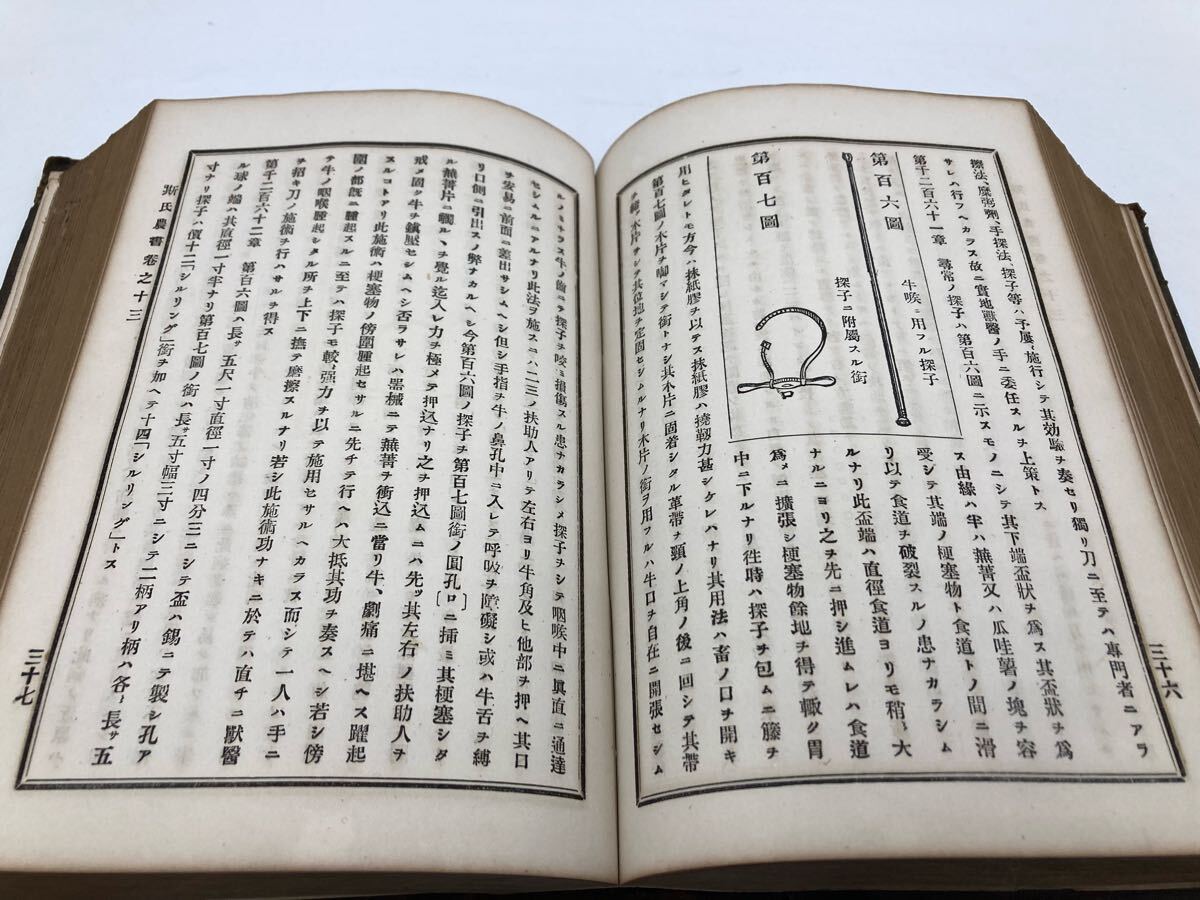 擦法、麻痺劑、手探法、探子等ハ予屢〻施行シテ其効驗ヲ奏セリ獨リ刀ニ至テハ專門者ニアラ
サレハ行フヘカラス故ニ實地獸醫ノ手ニ委任スルヲ上策トス
第千二百六十一章　尋常ノ探子ハ第百六圖ニ示スモノニシテ其下端盃狀ヲ爲ス其盃狀ヲ爲
第百六圖
牛喉ニ用フル探子
第百七圖
探子ニ附屬スル銜
ス由緣ハ牢ハ蕪菁又ハ瓜哇薯ノ塊ヲ容
受シテ其端ノ梗塞物ト食道トノ間ニ滑
リ以テ食道ヲ破裂スルノ患ナカラシム
ルナリ此盃端ハ直徑食道ヨリモ稍〻大
ナルニヨリ之ヲ先ニ押シ進ムレハ食道
爲メニ擴張シ梗塞物餘地ヲ得テ輙ク胃
中ニ下ルナリ徃時ハ探子ヲ包ムニ籐ヲ
用ヒタレトモ方今ハ抹紙膠ヲ以テス抹紙膠ハ撓靱力甚シケレハナリ其用法ハ畜ノ口ヲ開キ
第百七圖ノ木片ヲ啣マシテ銜トナシ其木片ニ固着シタル革帶ヲ頸ノ上角ノ後ニ回シテ其帶
ヲ縛シ木片ヲシテ其位地ヲ定固セシムルナリ木片ノ銜ヲ用フルハ牛口ヲ自在ニ開張セシム
三十六
ルノミナラス牛ノ齒ニテ探子ヲ咬ミ損傷スル患ナカラシメ探子ヲシテ咽喉中ニ眞直ニ通達
セシムルニアルナリ此法ヲ施スニハ二三ノ扶助人アリテ左右ヨリ牛角及ヒ他部ヲ押ヘ其口
ヲ安易ニ前面ニ差出サシムヘシ但シ手指ヲ牛ノ鼻孔中ニ入レテ呼吸ヲ障礙シ或ハ牛舌ヲ縛
リ口側ニ引出スノ弊ナカルヘシ今第百六圖ノ探子ヲ第百七圖銜ノ圓孔〔ロ〕ニ插ミ其梗塞シタ
ル蕪菁片ニ觸ルヽヲ覺ル迄入レ力ヲ極メテ押込ナリ之ヲ押込ムニハ先ツ其左右ノ扶助人ヲ
戒メ固ク牛ヲ鎮壓セシムヘシ否ラサレハ器械ニテ蕪菁ヲ衝込ニ當リ牛、劇痛ニ堪ヘス躍起
スルコトアリ此施術ハ梗塞物ノ傍圍腫起セサルニ先チテ行ヘハ大抵其功ヲ奏スヘシ若シ傍
圍ノ都既ニ腫起スルニ至テハ探子モ較〻强力ヲ以テ施用セサルヘカラス而シテ一人ハ手ニ
テ牛ノ咽喉腫起シタル所ヲ上下ニ撫テ磨擦スルナリ若シ此施術功ナキニ於テハ直チニ獸醫
ヲ招キ刀ノ施術ヲ行ハサルヲ得ス
第千二百六十二章　第百六圖ハ長サ五尺一寸直徑一寸ノ四分三ニシテ盃ハ錫ニテ製シ孔ア
ル球ノ端ハ其直徑一寸半ナリ第百七圖ノ銜ハ長サ五寸幅三寸ニシテ二柄アリ柄ハ各〻長サ五
寸ナリ探子ハ價十二「シルリング」銜ヲ加ヘテ十四「シルリング」トス
斯氏農書卷之十三
三十七